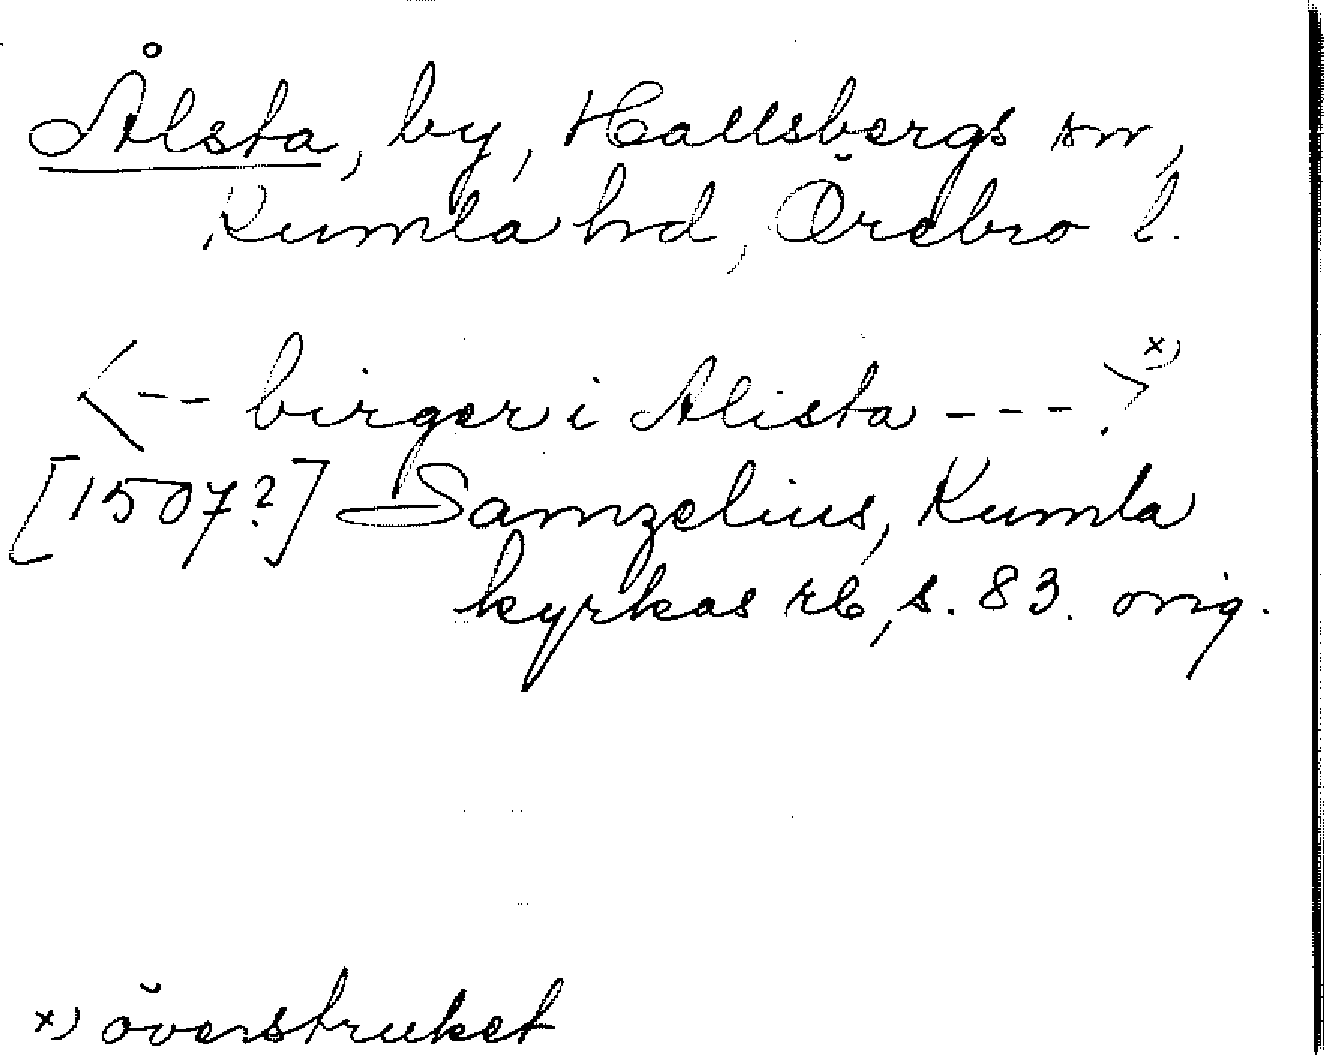 Ålsta, by, Hallsbergs sn,
Kumla hd, Örebro l.
<-- birger i Alista ---.> x)
[1507?] Samzelius, Kumla
kyrkas rb, s. 83. orig.
x) överstruket